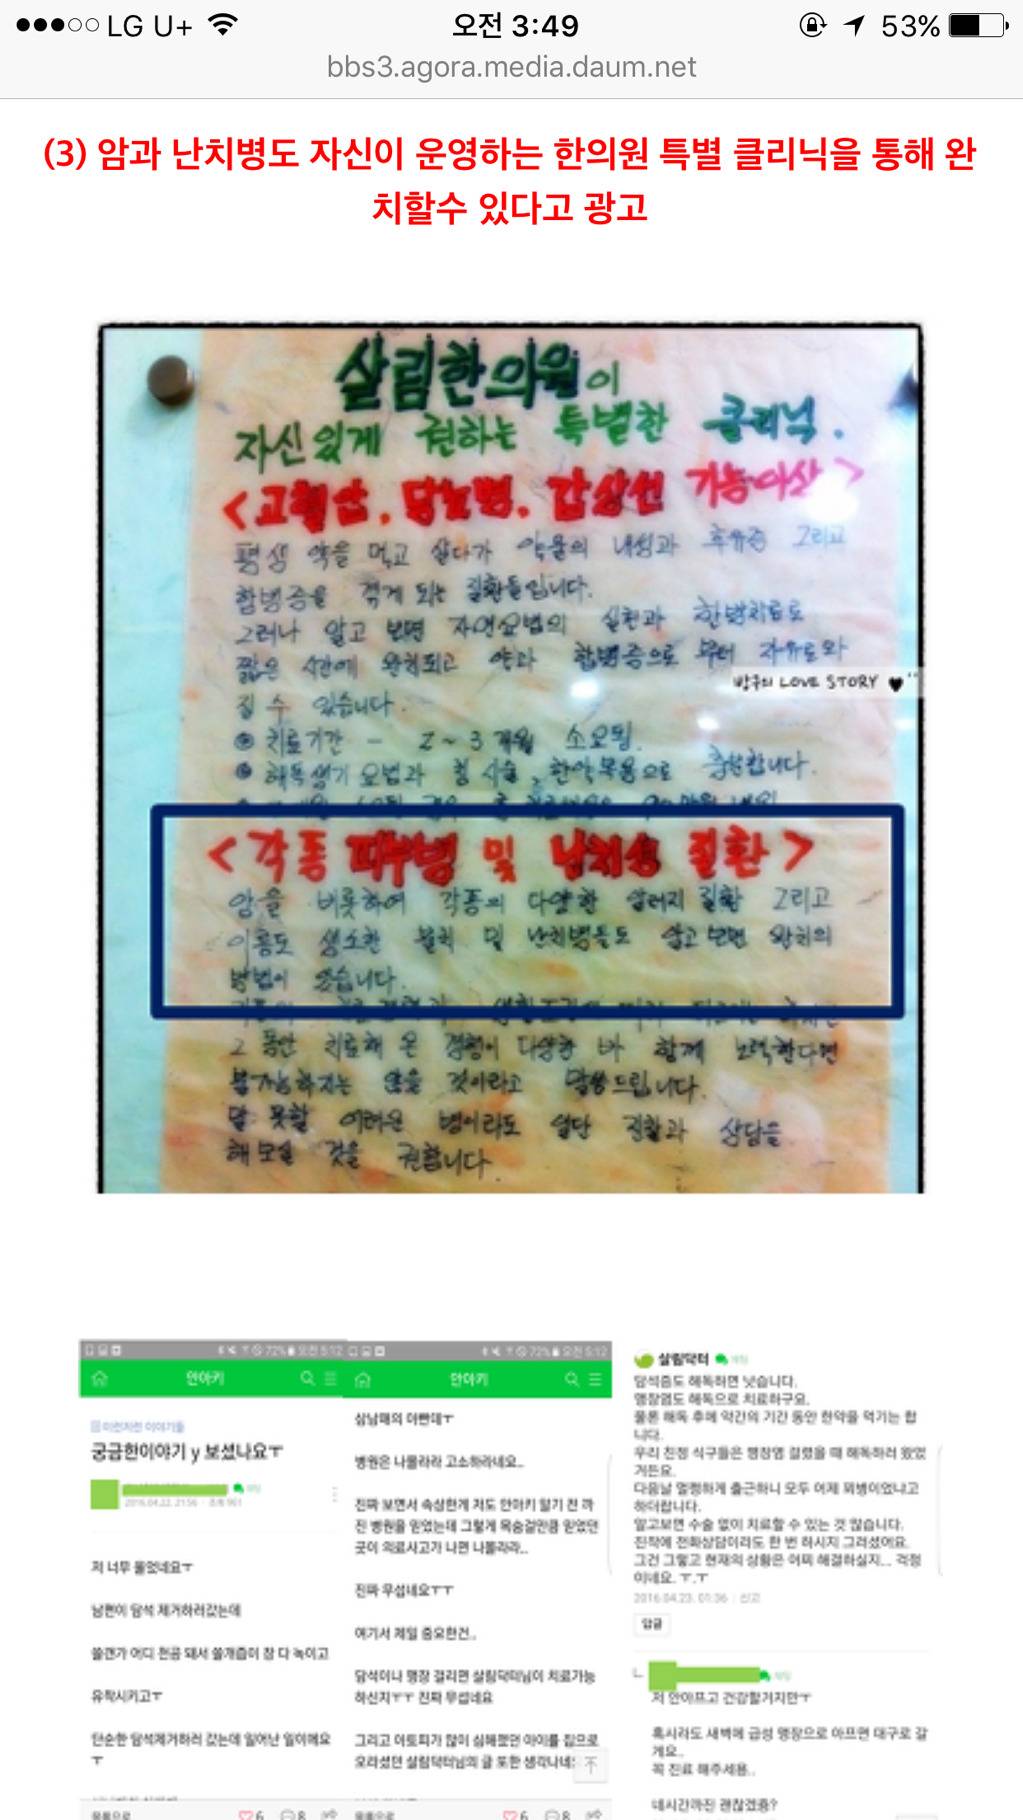 LG U+ 오전 3:49 53%
bbs3.agora.media.daum.net
(3) 암과 난치병도 자신이 운영하는 한의원 특별 클리닉을 통해 완
치할수 있다고 광고
살림한의원이
자신있게 권하는 특별한 클리닉.
<고혈압, 당뇨병, 갑상선 기능이상>
평생 약을 먹고 살다가 약물의 내성과 후유증 그리고
합병증을 겪게 되는 질환들입니다.
그러나 알고 보면 자연요법의 실천과 한방치료로
짧은 시간에 완치되고 약과 합병증으로 부터 자유로와
방구의 LOVE STORY ♥
질 수 있습니다.
치료기간 - 2~3개월 소요됨.
해독생기 요법과 침 시술, 한약복용으로 충분합니다.
<각종 피부병 및 난치성 질환>
암을 비롯하여 각종의 다양한 알러지 질환 그리고
이름도 생소한 불치 및 난치병들도 알고보면 완치의
방법이 있습니다.
그 동안 치료해 온 경험이 다양한 바 함께 노력한다면
불가능하지는 않을 것이라고 말씀드립니다.
말 못할 어려운 병이라도 일단 진찰과 상담을
해보실 것을 권합니다.
72% 오전 5:12
안아키
이런저런 이야기들
궁금한이야기 y 보셨나요ㅜ
2016.04.22. 21:56
저 너무 울었네요ㅜ
남편이 담석 제거하러갔는데
쓸갠가 어디 천공 돼서 쓸개즙이 장 다 녹이고
유착시키고ㅜ
단순한 담석제거하러 갔는데 일어난 일이에요
ㅜ
목록으로 6 8
72% 오전 5:12
안아키
삼남매의 아빤데ㅜ
병원은 나몰라라 고소하라네요..
진짜 보면서 속상한게 저도 안아키 알기 전 까
진 병원을 믿었는데 그렇게 목숨걸만큼 믿었던
곳이 의료사고가 나면 나몰라라..
진짜 무섭네요ㅜㅜ
여기서 제일 중요한건..
담석이나 맹장 걸리면 살림닥터님이 치료가능
하신지ㅜㅜ 진짜 무섭네요
그리고 아토피가 많이 심해했던 아이를 집으로
오라셨던 살림닥터님의 글 또한 생각나네
목록으로 6 8
살림닥터
담석증도 해독하면 낫습니다.
맹장염도 해독으로 치료하구요.
물론 해독 후에 약간의 기간 동안 한약을 먹기는 합
니다.
우리 친정 식구들은 맹장염 걸렸을 때 해독하러 왔었
거든요.
다음날 멀쩡하게 출근하니 모두 어제 꾀병이었냐고
하더랍니다.
알고보면 수술 없이 치료할 수 있는 것 많습니다.
진작에 전화상담이라도 한 번 하시지 그러셨어요.
그건 그렇고 현재의 상황은 어찌 해결하실지... 걱정
이네요. ㅜ.ㅜ
2016.04.23. 01:36 신고
답글
저 안아프고 건강할거지만ㅜ
혹시라도 새벽에 급성 맹장으로 아프면 대구로 갈
게요..
꼭 진료 해주세용..
네시간까진 괜찮겠죵?